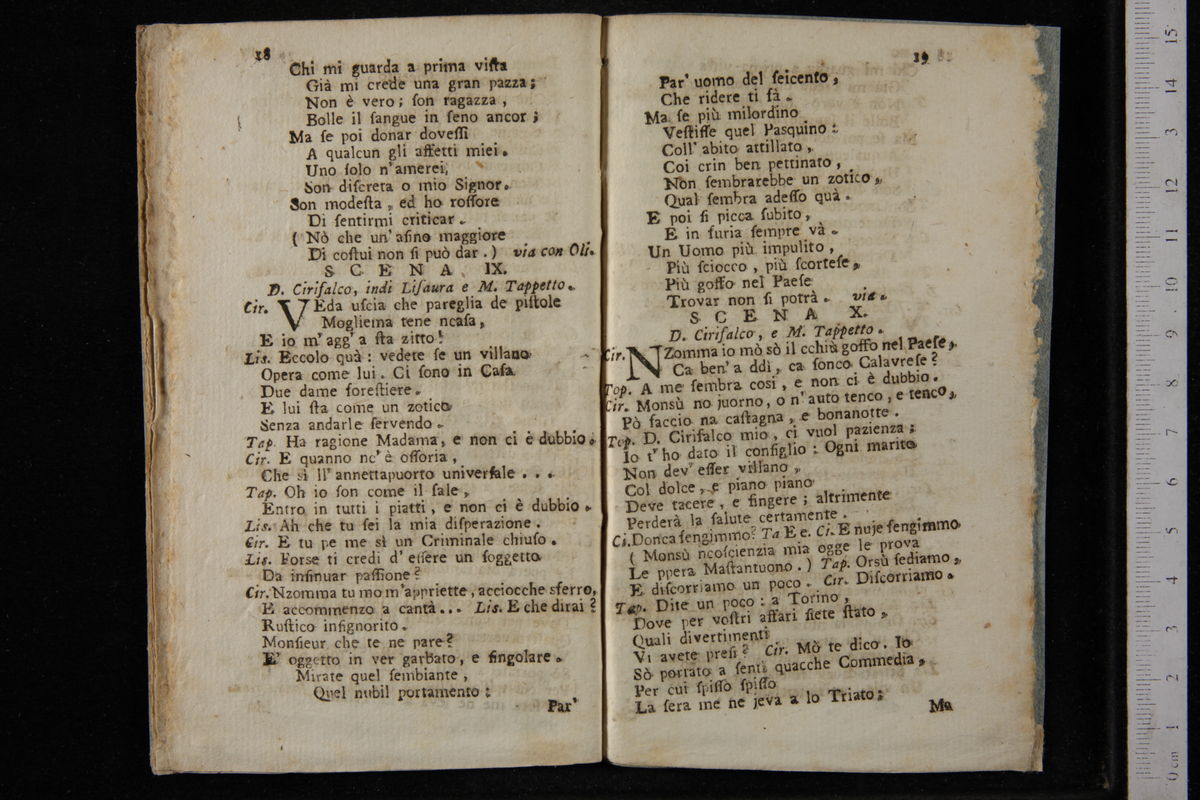 18
Chi mi guarda a prima viſta
Già mi crede una gran pazza;
Non è vero; ſon ragazza,
Bolle il ſangue in ſeno ancor;
Ma ſe poi donar doveſſi
A qualcun gli affetti miei.
Uno ſolo n'amerei,
Son diſcreta o mio Signor.
Son modeſta, ed ho roſſore
Di ſentirmi criticar.
( Nò che un' aſino maggiore
Di coſtui non ſi può dar. ) via con Oli.
SCENA IX.
D. Cirifalco, indi Liſaura e M. Tappetto.
Cir. VEda uſcia che pareglia de piſtole
Mogliema tene ncaſa,
E io m'agg' a ſta zitto!
Lis. Eccolo quà: vedete ſe un villano
Opera come lui. Ci ſono in Caſa
Due dame foreſtiere.
E lui ſta come un zotico
Senza andarle ſervendo.
Tap. Ha ragione Madama, e non ci è dubbio.
Cir. E quanno nc' è oſſoria,
Che sì ll' annettapuorto univerſale . . .
Tap. Oh io ſon come il ſale,
Entro in tutti i piatti, e non ci è dubbio.
Lis. Ah che tu ſei la mia diſperazione.
Cir. E tu pe me sì un Criminale chiuſo.
Lis. Forse ti credi d' eſſere un ſoggetto
Da inſinuar paſſione?
Cir. Nzomma tu mo m'appriette, acciocche sferro,
E accommenzo a cantà... Lis. E che dirai?
Ruſtico inſignorito.
Monſieur che te ne pare?
E' oggetto in ver garbato, e ſingolare.
Mirate quel ſembiante,
Quel nobil portamento:
Par'
19
Par' uomo del ſeicento,
Che ridere ti fà.
Ma ſe più milordino
Veſtiſſe quel Pasquino:
Coll' abito attillato,
Coi crin ben pettinato,
Non ſembrarebbe un zotico,
Qual ſembra adeſſo quà.
E poi ſi picca ſubito,
E in furia ſempre và.
Un Uomo più impulito,
Più ſciocco, più ſcorteſe,
Più goffo nel Paeſe
Trovar non ſi potrà. via.
SCENA X.
D. Cirifalco, e M. Tappetto.
Cir. NZomma io mò sò il cchiù goffo nel Paeſe,
Ca ben' a ddì, ca ſonco Calavreſe?
Top. A me ſembra così, e non ci è dubbio.
Cir. Monsù no juorno, o n' auto tenco, e tenco,
Pò faccio na caſtagna, e bonanotte.
Top. D. Cirifalco mio, ci vuol pazienza;
Io t' ho dato il conſiglio: Ogni marito
Non dev' eſſer villano,
Col dolce, e piano piano
Deve tacere, e fingere; altrimente
Perderà la ſalute certamente.
Ci. Donca fengimmo? Ta E e. Ci. E nuje fengimmo
( Monsù ncoſcienzia mia ogge le prova
Le ppera Maſtantuono. ) Tap. Orsù ſediamo,
E diſcorriamo un poco. Cir. Diſcorriamo.
Tap. Dite un poco: a Torino,
Dove per voſtri affari ſiete ſtato,
Quali divertimenti
Vi avete preſi? Cir. Mò te dico. Io
Sò portato a ſentì quacche Commedia,
Per cui ſpiſſo ſpiſſo
La ſera me ne jeva a lo Triato:
Ma